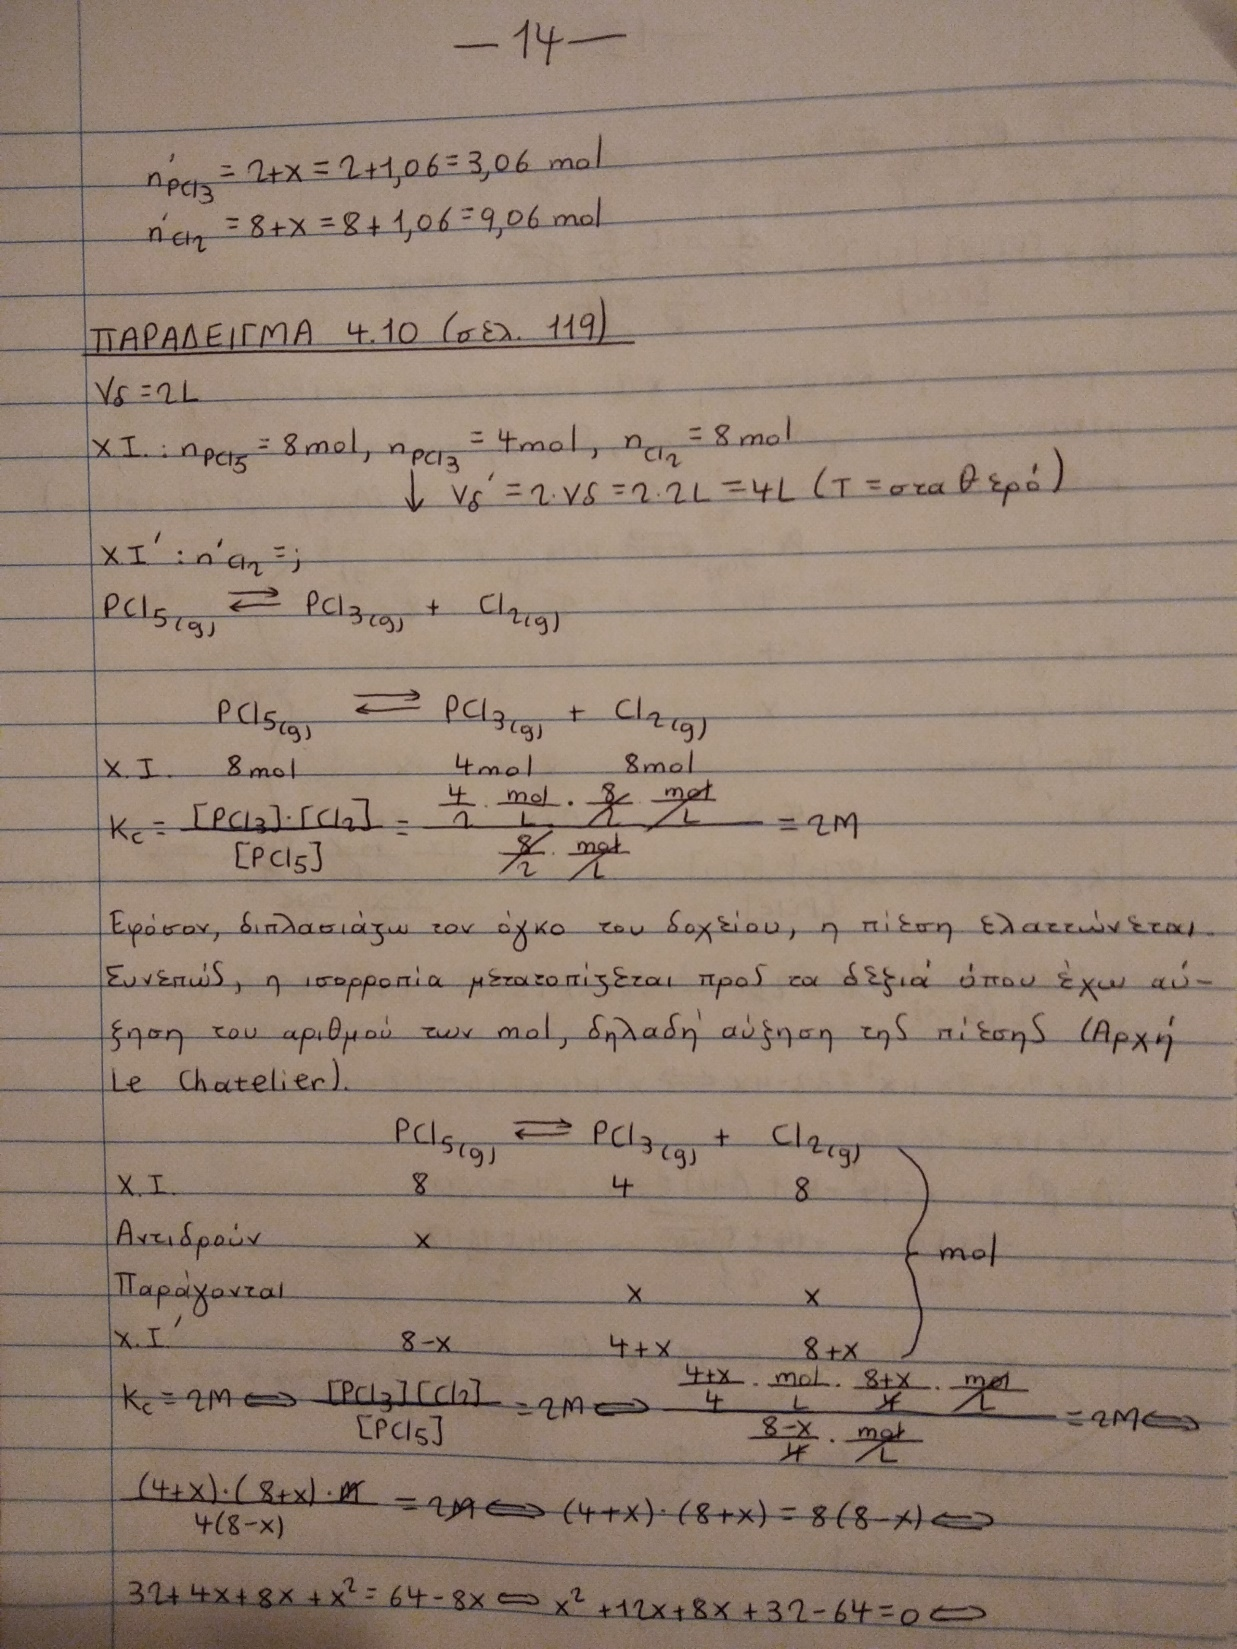 — 14 —
n'PCl3 = 2+x = 2+1,06 = 3,06 mol
n'Cl2 = 8+x = 8+1,06 = 9,06 mol
ΠΑΡΑΔΕΙΓΜΑ 4.10 (σελ. 119)
Vδ = 2L
X.I. : nPCl5 = 8mol, nPCl3 = 4mol, nCl2 = 8mol
↓ Vδ' = 2·Vδ = 2·2L = 4L (T = σταθερό)
X.I' : n'Cl2 = ;
PCl5(g) ⇄ PCl3(g) + Cl2(g)
PCl5(g) ⇄ PCl3(g) + Cl2(g)
X.I. 8mol 4mol 8mol
Kc = [PCl3]·[Cl2] / [PCl5] = (4/2 · mol/L · 8/2 · mol/L) / (8/2 · mol/L) = 2M
Εφόσον, διπλασιάζω τον όγκο του δοχείου, η πίεση ελαττώνεται.
Συνεπώς, η ισορροπία μετατοπίζεται προς τα δεξιά όπου έχω αύ-
ξηση του αριθμού των mol, δηλαδή αύξηση της πίεσης (Αρχή
Le Chatelier).
PCl5(g) ⇄ PCl3(g) + Cl2(g)
X.I. 8 4 8
Αντιδρούν x
mol
Παράγονται x x
X.I' 8-x 4+x 8+x
Kc = 2M ⇔ [PCl3][Cl2] / [PCl5] = 2M ⇔ (4+x/4 · mol/L · 8+x/4 · mol/L) / (8-x/4 · mol/L) = 2M ⇔
(4+x)·(8+x)·M / 4(8-x) = 2M ⇔ (4+x)·(8+x) = 8(8-x) ⇔
32+4x+8x+x² = 64-8x ⇔ x²+12x+8x+32-64=0 ⇔